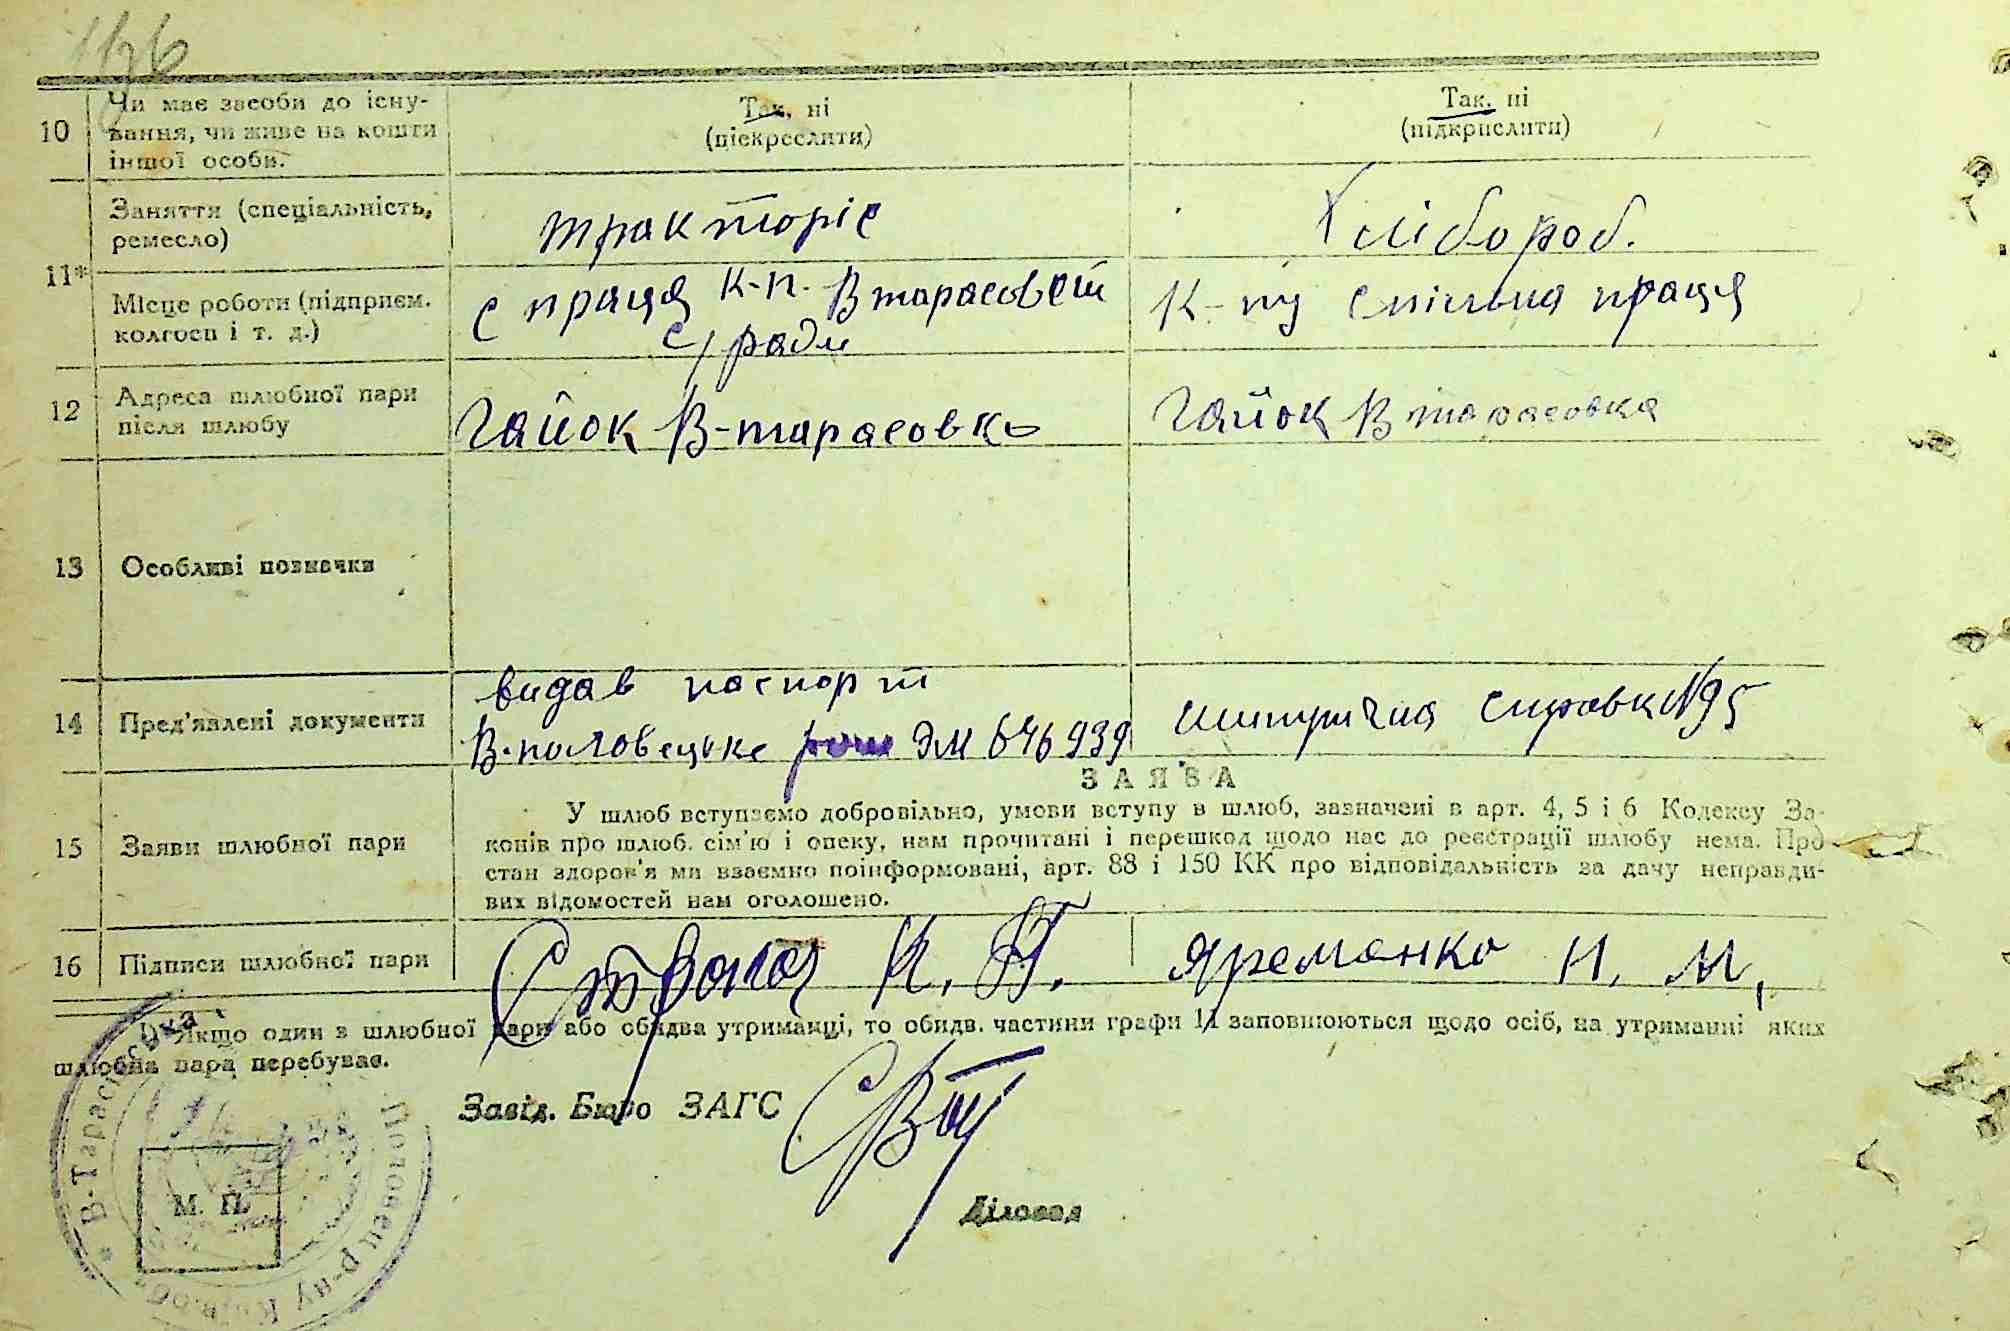 186
10 Чи має засоби до існу-
вання, чи живе на кошти
іншої особи.
Так, ні
(підкреслити)
Так, ні
(підкрислити)
11* Заняття (спеціальність,
ремесло)
тракторіс
Хлібороб.
Місце роботи (підприєм.
колгосп і т. д.)
с праця к-п. Втарасовскій
с/ради
к-пу спільна праця
12 Адреса шлюбної пари
після шлюбу
Гайок В-тарасовка
Гайок Втарасовка
13 Особливі позначки
14 Пред'явлені документи
видав паспорт
В-половецьке ЭМ 646939
справк №95
15 Заяви шлюбної пари
ЗАЯВА
У шлюб вступаємо добровільно, умови вступу в шлюб, зазначені в арт. 4, 5 і 6 Кодексу За-
конів про шлюб. сім'ю і опеку, нам прочитані і перешкод щодо нас до реєстрації шлюбу нема. Про
стан здоров'я ми взаємно поінформовані, арт. 88 і 150 КК про відповідальність за дачу неправди-
вих відомостей нам оголошено.
16 Підписи шлюбної пари
Яременко Н. М.
1) Якщо один з шлюбної пари або обидва утриманці, то обидв. частини графи 11 заповнюються щодо осіб, на утриманні яких
шлюбна пара перебуває.
Завід. Бюро ЗАГС
Діловод
М. П.
В-Тарасівська
Половец р-ну Київ.об